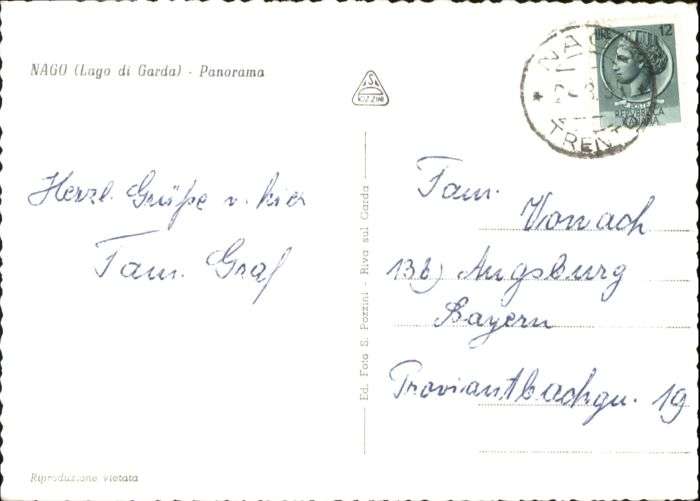 NAGO (Lago di Garda) - Panorama
LIRE 12
POSTE
REPVBBLICA
ITALIANA
NAGO
TRENTO
Herzl. Grüße v. hier
Fam. Graf
Ed. Foto S. Pozzini - Riva sul Garda
Fam.
Vonach
13b) Augsburg
Bayern
Proviantbachstr. 19
Riproduzione vietata